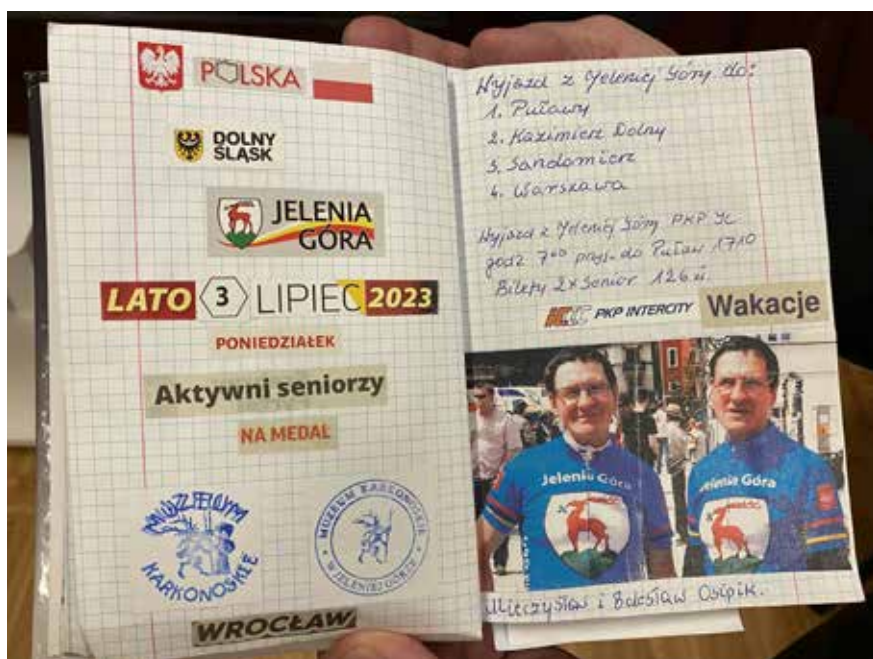 POLSKA
DOLNY
ŚLĄSK
JELENIA
GÓRA
LATO 3 LIPIEC 2023
PONIEDZIAŁEK
Aktywni seniorzy
NA MEDAL
MUZEUM
KARKONOSKIE
MUZEUM KARKONOSKIE
W JELENIEJ GÓRZE
WROCŁAW
Wyjazd z Jeleniej Góry do:
1. Puławy
2. Kazimierz Dolny
3. Sandomierz
4. Warszawa
Wyjazd z Jeleniej Góry PKP IC
godz 7⁰⁰ przyj. do Puław 17¹⁰
Bilety 2x Senior 126 zł.
PKP INTERCITY Wakacje
Jelenia Góra
Jelenia Góra
Mieczysław i Bolesław Osipik.